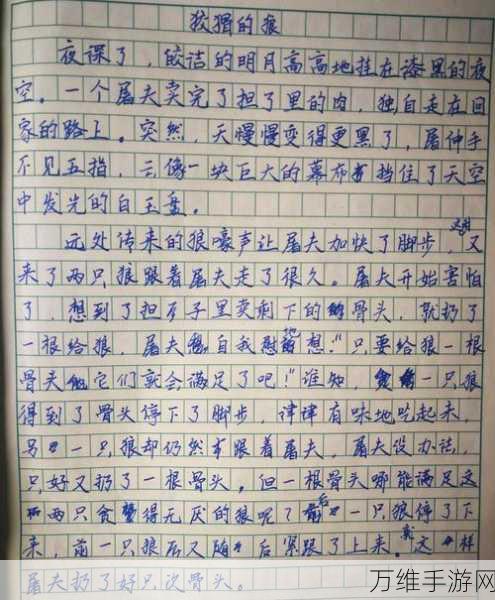 狡猾的狼
夜深了，皎洁的明月高高地挂在漆黑的夜
空。一个屠夫卖完了担子里的肉，独自走在回
家的路上。突然，天慢慢变得更黑了，屠伸手
不见五指，云像一块巨大的幕布挡住了天空
中发光的白玉盘。
远处传来的狼嚎声让屠夫加快了脚步，又
来了两只狼跟着屠夫走了很久。屠夫开始害怕
了，想到了担子里卖剩下的骨头，就扔了
一根给狼，屠夫自我慰想："只要给狼一根
骨头它们就会满足了吧！"谁知，一只狼
得到了骨头停下了脚步，津津有味地吃起来，
另一只狼却仍然跟着屠夫，屠夫没办法，
只好又扔了一根骨头。但一根骨头哪能满足这
两只贪得无厌的狼呢？后一只狼停了下
来，前一只狼后又随后紧跟了上来。就这样
屠夫扔了好几次骨头。
万维手游网